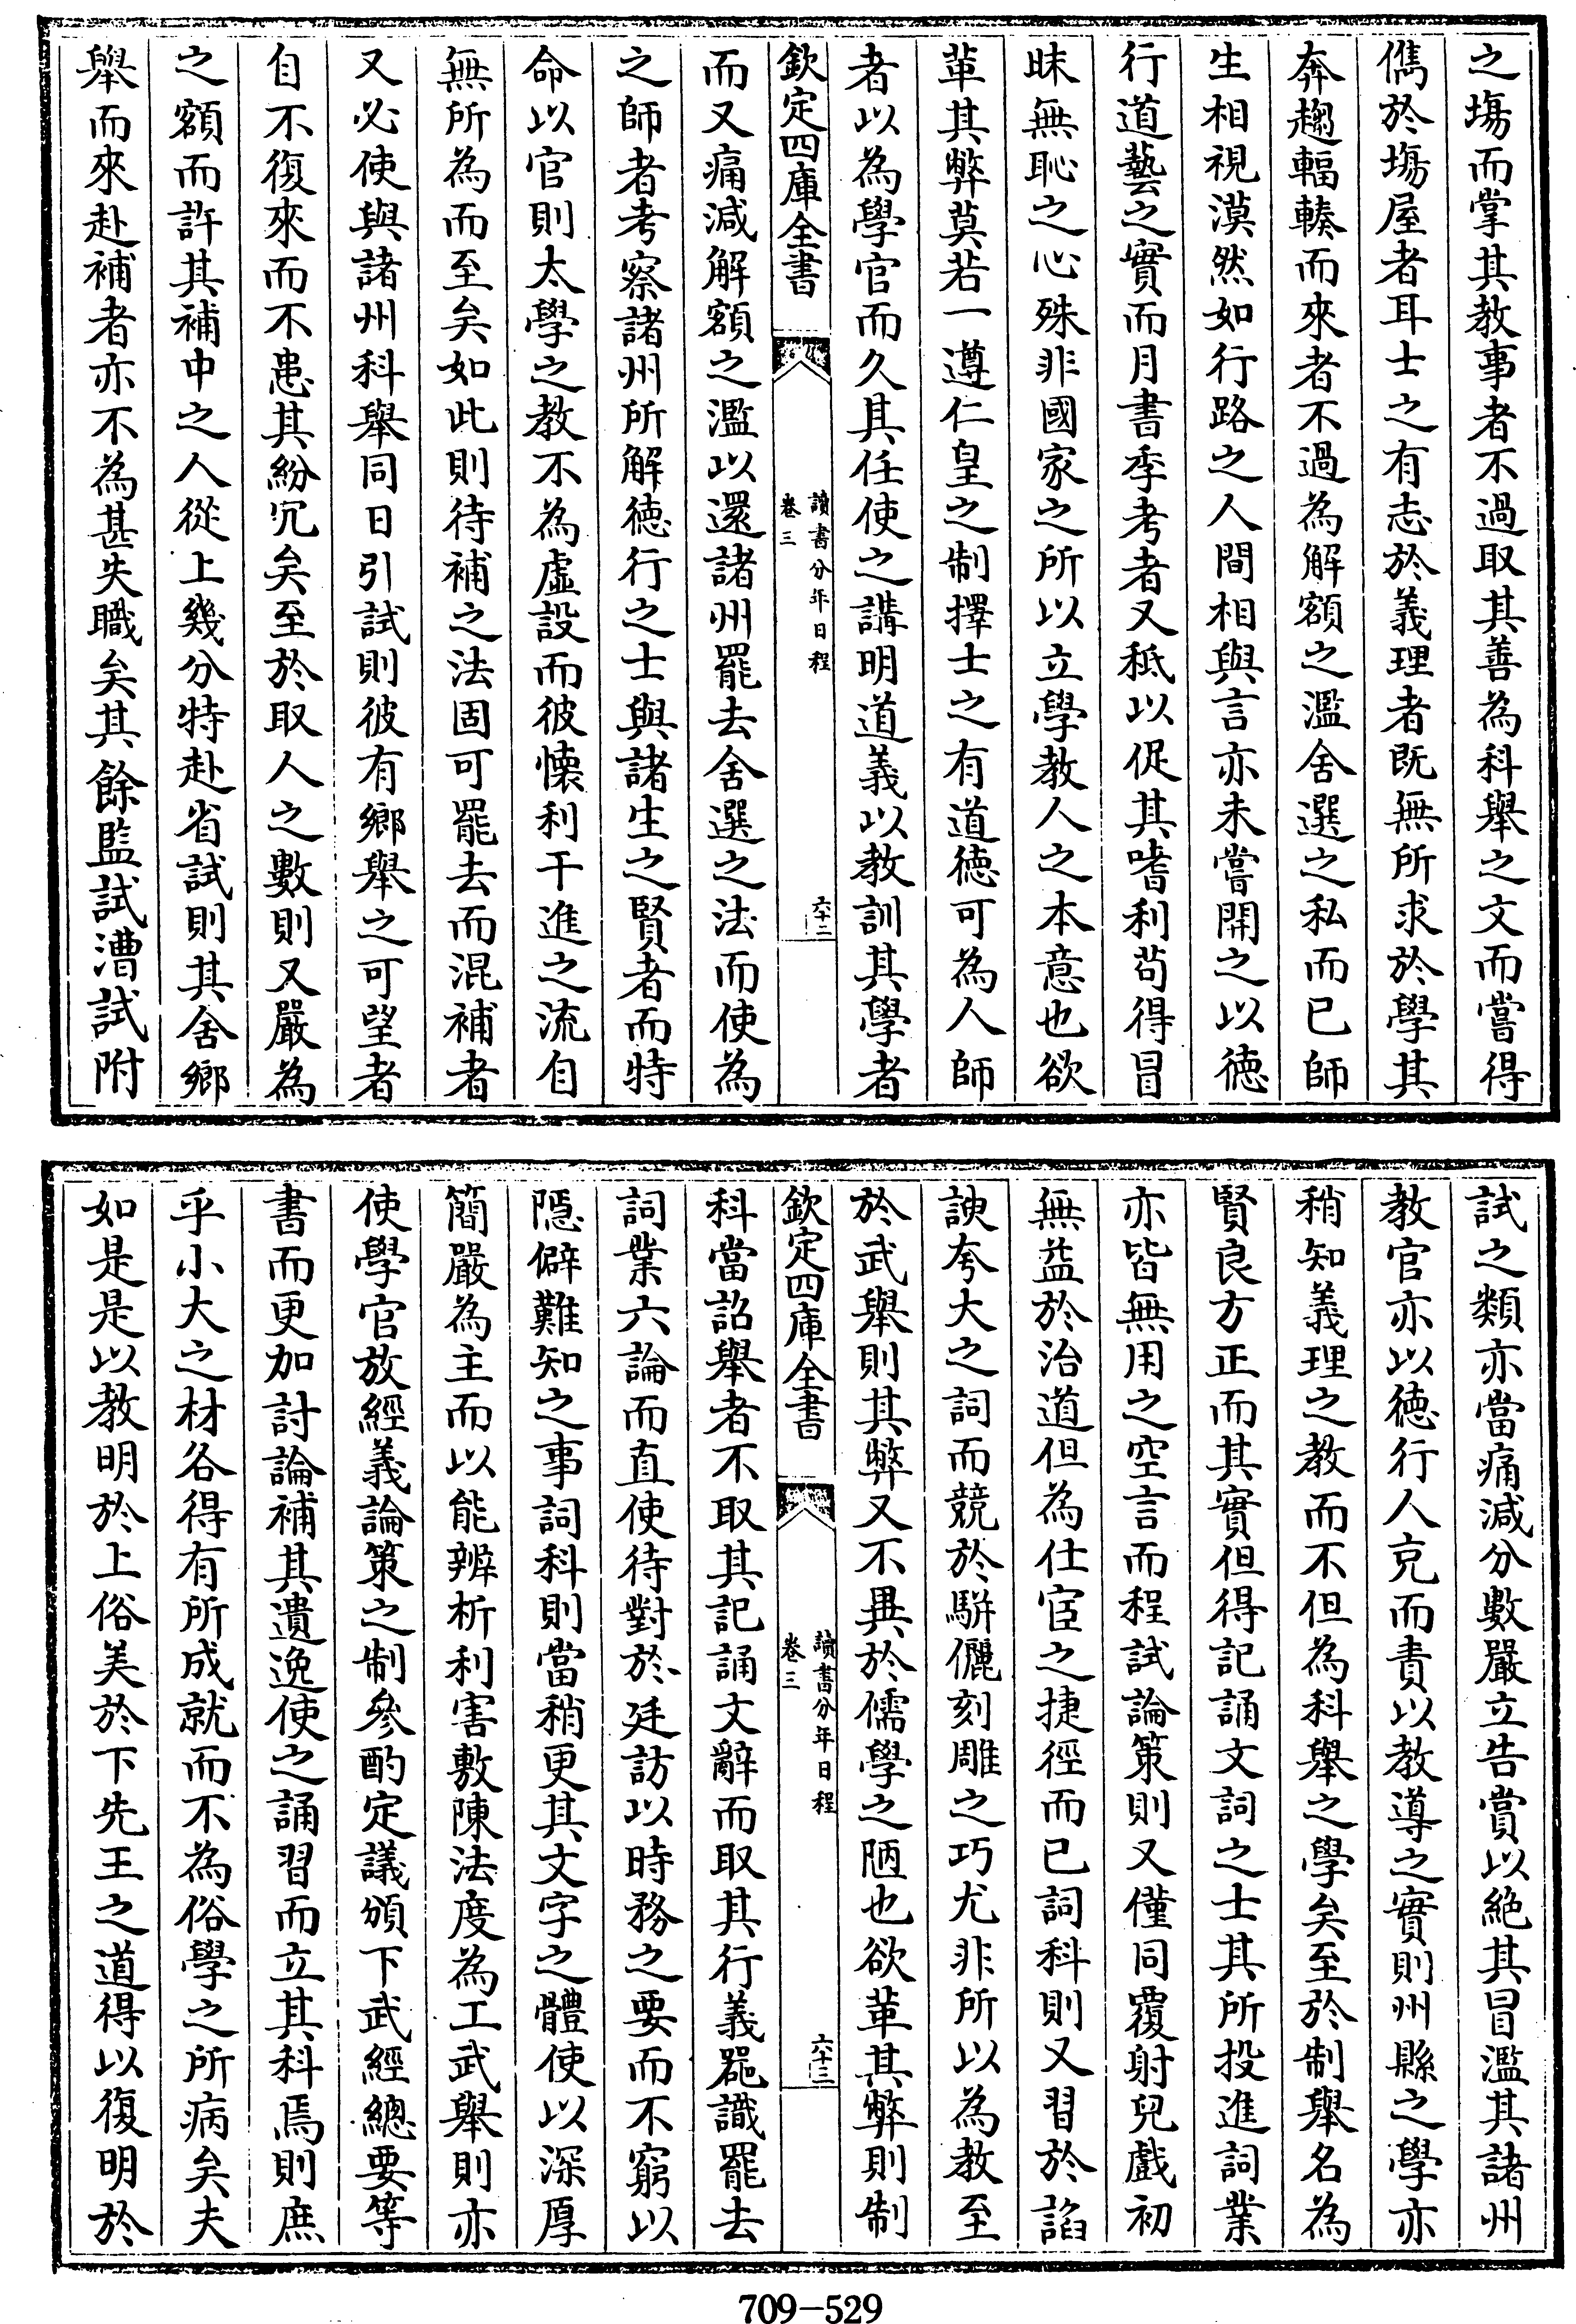 之塲而掌其教事者不過取其善為科舉之文而嘗得
儁於塲屋者耳士之有志於義理者既無所求於學其
奔趨輻輳而來者不過為解額之濫舍選之私而已師
生相視漠然如行路之人間相與言亦未嘗開之以徳
行道藝之實而月書季考者又秪以促其嗜利茍得冒
昧無恥之心殊非國家之所以立學教人之本意也欲
革其弊莫若一遵仁皇之制擇士之有道徳可為人師
者以為學官而久其任使之講明道義以教訓其學者
欽定四庫全書
讀書分年日程
卷三
六十二
而又痛減解額之濫以還諸州罷去舍選之法而使為
之師者考察諸州所解徳行之士與諸生之賢者而特
命以官則太學之教不為虛設而彼懐利干進之流自
無所為而至矣如此則待補之法固可罷去而混補者
又必使與諸州科舉同日引試則彼有鄉舉之可望者
自不復來而不患其紛冗矣至於取人之數則又嚴為
之額而許其補中之人從上幾分特赴省試則其舍鄉
舉而來赴補者亦不為甚失職矣其餘監試漕試附
試之類亦當痛減分數嚴立告賞以絶其冒濫其諸州
教官亦以徳行人充而責以教導之實則州縣之學亦
稍知義理之教而不但為科舉之學矣至於制舉名為
賢良方正而其實但得記誦文詞之士其所投進詞業
亦皆無用之空言而程試論策則又僅同覆射兒戲初
無益於治道但為仕宦之捷徑而已詞科則又習於諂
諛夸大之詞而競於駢儷刻雕之巧尤非所以為教至
於武舉則其弊又不異於儒學之陋也欲革其弊則制
欽定四庫全書
讀書分年日程
卷三
六十三
科當詔舉者不取其記誦文辭而取其行義器識罷去
詞業六論而直使待對於廷訪以時務之要而不窮以
隱僻難知之事詞科則當稍更其文字之體使以深厚
簡嚴為主而以能辨析利害敷陳法度為工武舉則亦
使學官放經義論策之制參酌定議頒下武經總要等
書而更加討論補其遺逸使之誦習而立其科焉則庶
乎小大之材各得有所成就而不為俗學之所病矣夫
如是是以教明於上俗美於下先王之道得以復明於
709-529